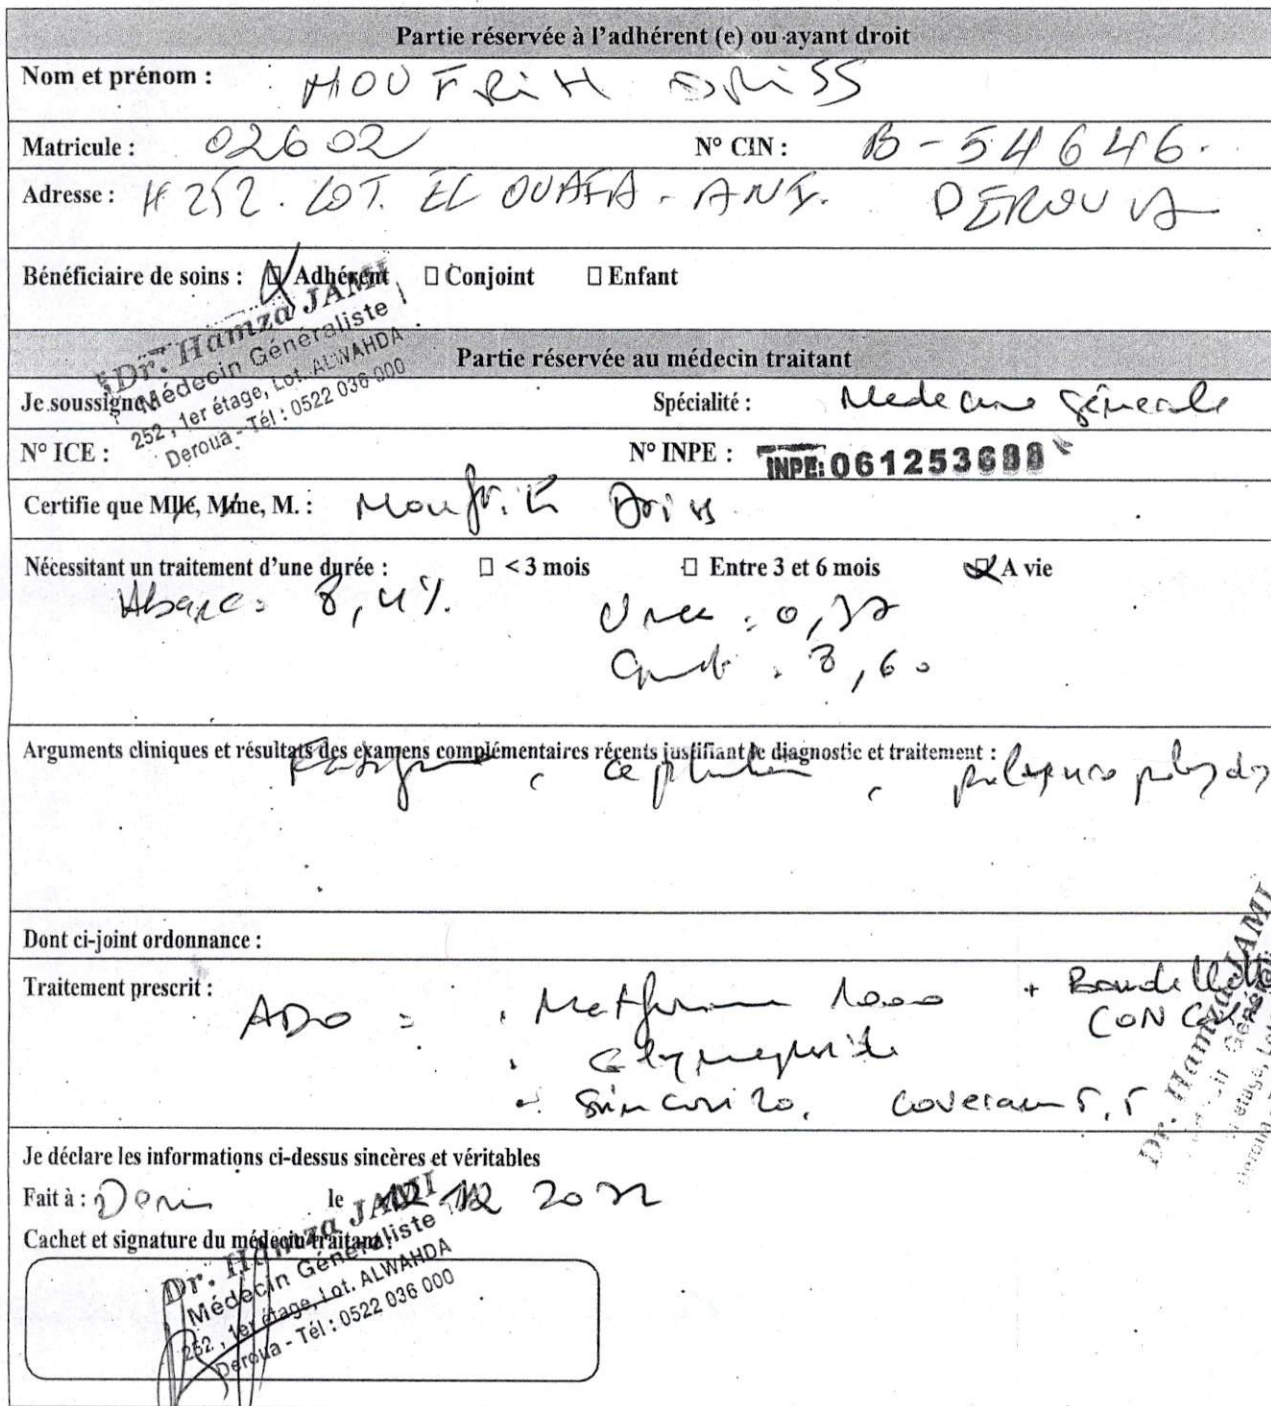 Partie réservée à l'adhérent (e) ou ayant droit
Nom et prénom : MOUFRIH DRISS
Matricule : 02602 N° CIN : B-54646.
Adresse : H 252. LOT. EL OUAFA - ANX. DEROUA
Bénéficiaire de soins : ☑ Adhérent ☐ Conjoint ☐ Enfant
Dr. Hamza JAMI
Médecin Généraliste
252, 1er étage, Lot. ALWAHDA
Deroua - Tél : 0522 036 000
Partie réservée au médecin traitant
Je soussigné Spécialité : Medecine générale
N° ICE : N° INPE : INPE: 061253688
Certifie que Mlle, Mme, M. : Moufrih Driss
Nécessitant un traitement d'une durée : ☐ < 3 mois ☐ Entre 3 et 6 mois ☑ A vie
8,4%. Uree : 0,32
Arguments cliniques et résultats des examens complémentaires récents justifiant le diagnostic et traitement :
Fatigue, cephalee,
Dont ci-joint ordonnance :
Traitement prescrit :
ADO = . Metformine 1000 + Bandelette
. Glymepiride CON
. 20, coveram 5,5
Dr. Hamza JAMI
Je déclare les informations ci-dessus sincères et véritables
Fait à : le 12 12 2022
Cachet et signature du médecin traitant :
Dr. Hamza JAMI
Médecin Généraliste
252, 1er étage, Lot. ALWAHDA
Deroua - Tél : 0522 036 000